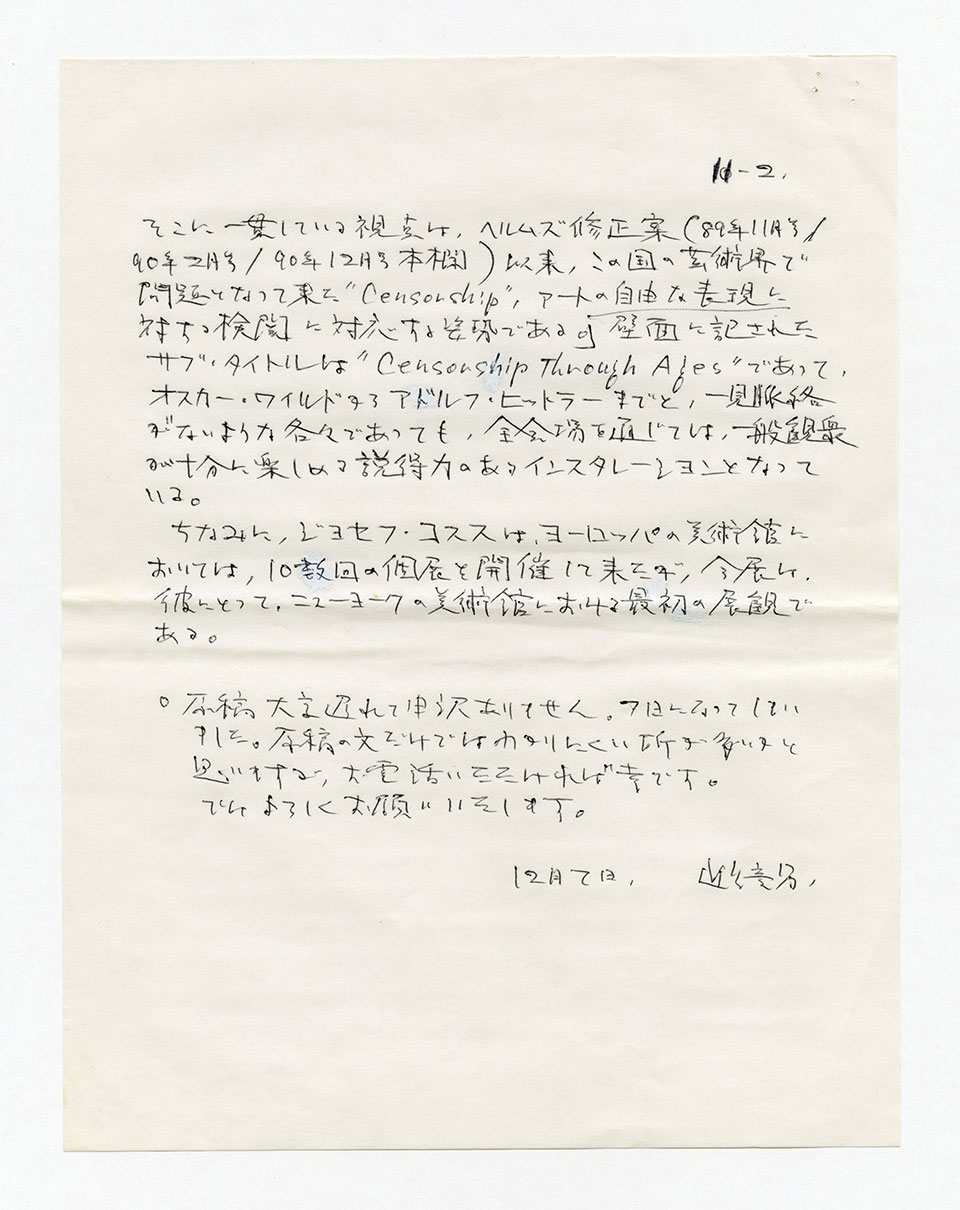 11-2.
そこに一貫している視点は、ヘルムズ修正案('89年11月号/
90年2月号/90年12月号本欄)以来、この国の芸術界で
問題となって来た"Censorship"、アートの自由な表現に
対する検閲に対応する姿勢である。壁面に記された
サブ・タイトルは"Censorship Through Ages"であって、
オスカー・ワイルドからアドルフ・ヒットラーまでと、一見脈絡
がないような各々であっても、全会場を通じては、一般観衆
が十分に楽しめる説得力のあるインスタレーションとなって
いる。
ちなみに、ジョセフ・コススは、ヨーロッパの美術館に
おいては、10数回の個展を開催して来たが、今展は、
彼にとって、ニューヨークの美術館における最初の展観で
ある。
○原稿大変遅れて申訳ありません。7日になってしまい
ました。原稿の文だけではわかりにくい所が多いかと
思いますが、お電話いただければ幸です。
ではよろしくお願いいたします。
12月7日、